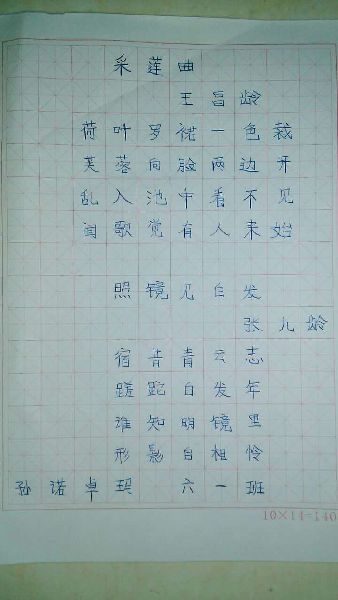 采莲曲
王昌龄
荷叶罗裙一色裁
芙蓉向脸两边开
乱入池中看不见
闻歌觉有人未始
照镜见白发
张九龄
宿昔青云志
蹉跎白发年
谁知明镜里
形影自相怜
孙诺卓 六一班
10×14=140